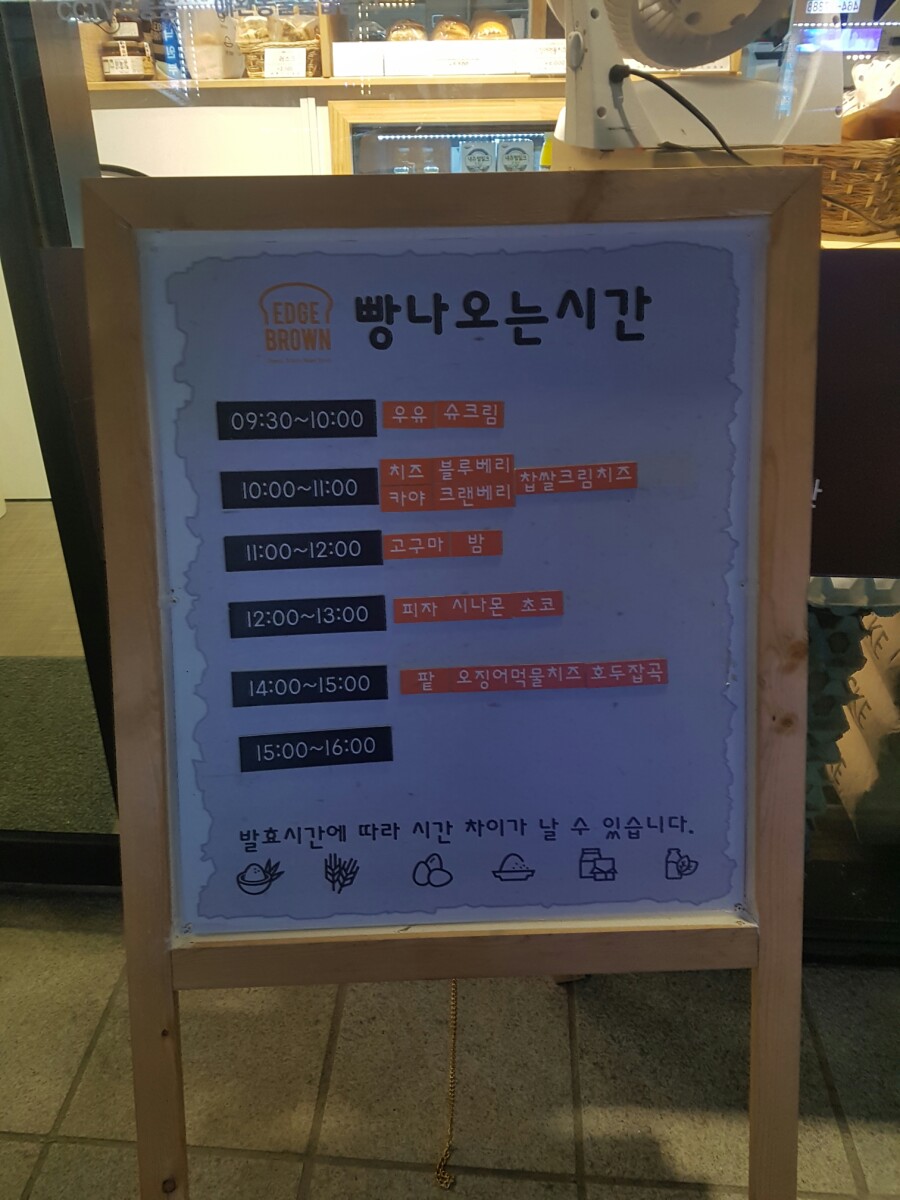 EDGE
BROWN
빵나오는시간
09:30~10:00 우유 슈크림
10:00~11:00 치즈 블루베리 찹쌀크림치즈
카야 크랜베리
11:00~12:00 고구마 밤
12:00~13:00 피자 시나몬 초코
14:00~15:00 팥 오징어먹물치즈 호두잡곡
15:00~16:00
발효시간에 따라 시간 차이가 날 수 있습니다.